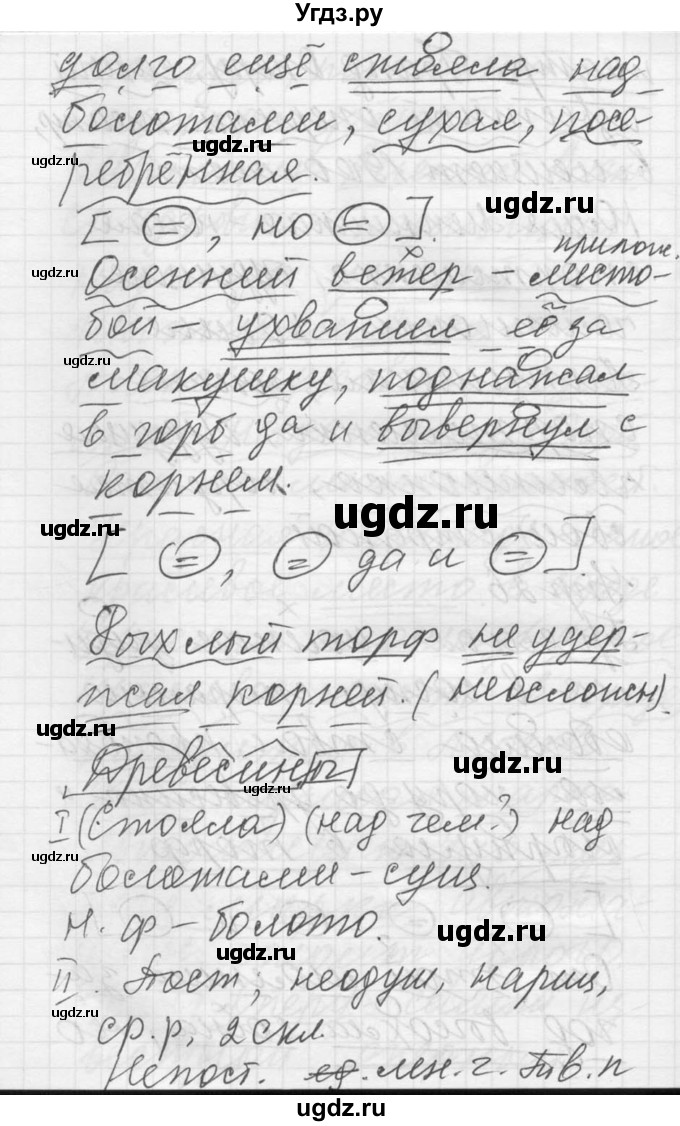 Угдз.ру
долго ещё стояла над
болотами, сухая, посе-
ugdz.ru
ugdz.ru
ребрённая.
ugdz.ru
[ = , но = ].
прилож.
ugdz.ru
Осенний ветер – листо-
бой – ухватил её за
ugdz.ru
макушку, поднажал
в горб да и вывернул с
корнем.
ugdz.ru
ugdz.ru
[ = , = да и = ].
Рыхлый торф не удер-
жал корней. (неосложн).
ugdz.ru
Древесины
ugdz.ru
ugdz.ru
I (Стояла) (над чем?) над
ugdz.ru
болотами – сущ.
н. ф – болото.
ugdz.ru
ugdz.ru
II. Пост; неодуш, нариц,
ugdz.ru
ср. р, 2 скл.
Непост. ед. мн. ч. Тв. п
ugdz.ru